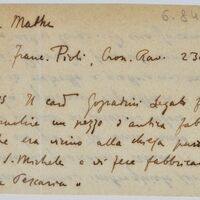 6.84
. Mathe
Franc. Pioli, Cron. Rav. 23
5 Il card Gozzadini legato f
molire un pezzo d'antica fab
che era vicino alla chiesa par
S. Michele e vi fece fabbrica
a Pescaria "